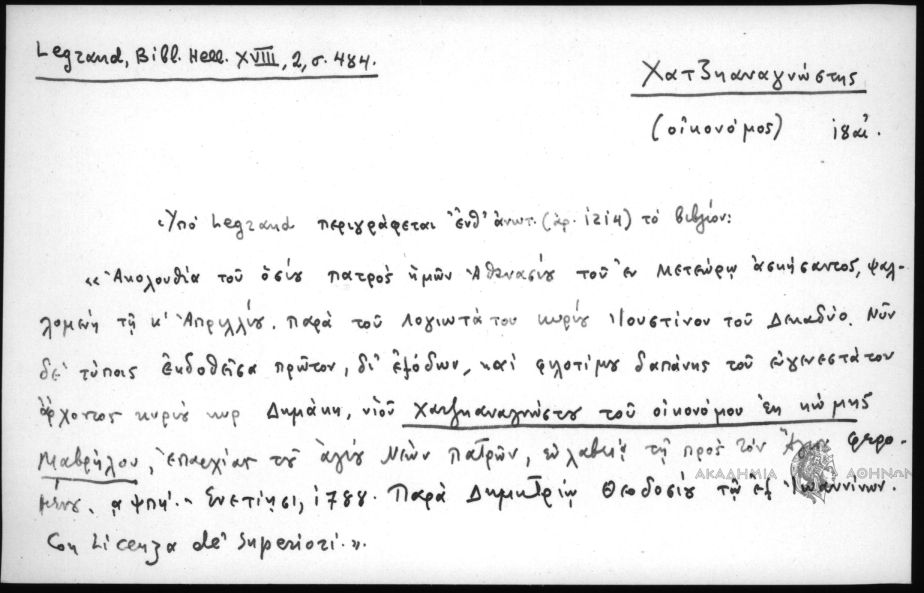 Legrand, Bibl. Hell. XVIII, 2, σ. 484.
Χατζηαναγνώστης
(οἰκονόμος) ιδαί.
Ὑπό Legrand περιγράφεται ἔνθ' ἀνωτ. (ἀρ. 1214) τό βιβλίον:
« Ἀκολουθία τοῦ ὁσίου πατρός ἡμῶν Ἀθανασίου τοῦ ἐν Μετεώρῳ ἀσκήσαντος, ψαλ-
λομένη τῇ κ' Ἀπριλλίου. Παρά τοῦ λογιωτάτου κυρίου Ἰουστίνου τοῦ Δεκαδύο. Νῦν
δέ τύποις ἐκδοθεῖσα πρῶτον, δι' ἐξόδων, καί φιλοτίμου δαπάνης τοῦ εὐγενεστάτου
ἄρχοντος κυρίου κυρ Δημάκη, υἱοῦ Χατζηαναγνώστου τοῦ οἰκονόμου ἐκ κώμης
Μαβρήλου, ἐπαρχίας τοῦ ἁγίου Νέων Πατρῶν, εὐλαβείᾳ τῇ πρός τόν Ἅγιον φερο-
μένου. αψπη'. - Ενετίησι, 1788. Παρά Δημητρίῳ Θεοδοσίου τῷ ἐξ Ἰωαννίνων.
Con Licenza de' Superiori.».
ΑΚΑΔΗΜΙΑ ΑΘΗΝΩΝ